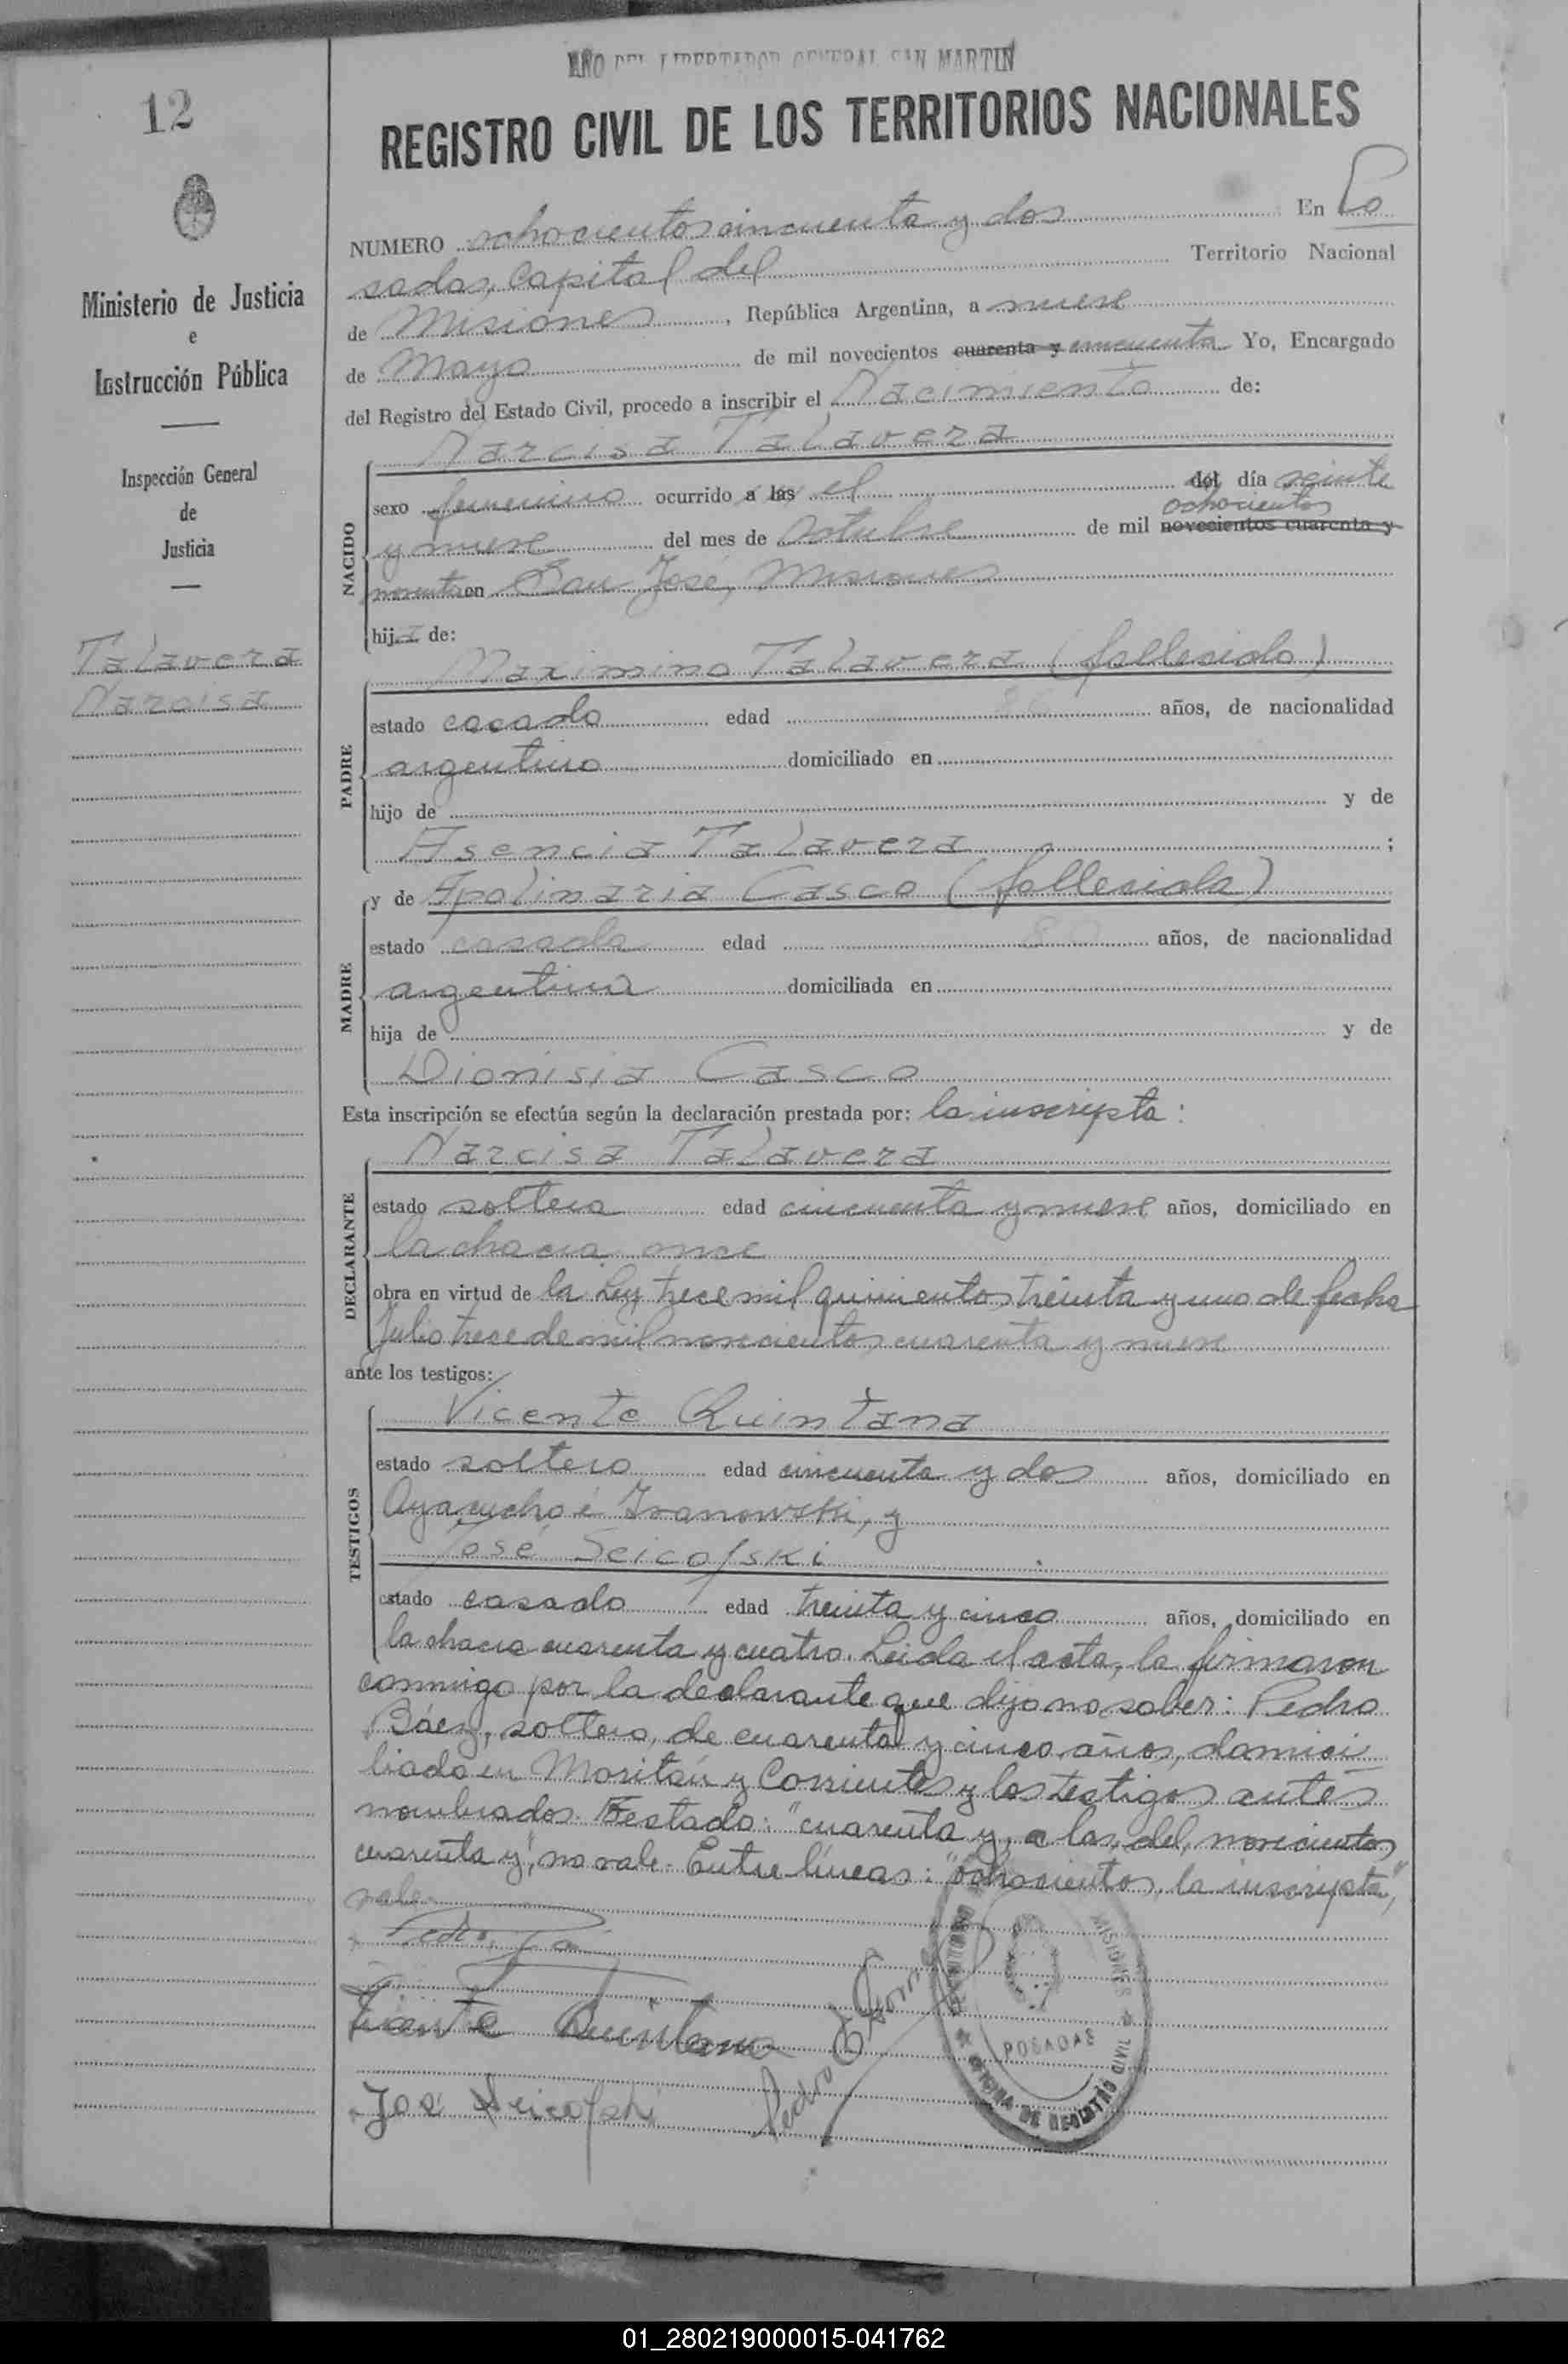 AÑO DEL LIBERTADOR GENERAL SAN MARTIN
REGISTRO CIVIL DE LOS TERRITORIOS NACIONALES
12
Ministerio de Justicia
e
Instrucción Pública
Inspección General
de
Justicia
Talavera
Narcisa
NUMERO ochocientos cincuenta y dos En Po
sadas, Capital del Territorio Nacional
de Misiones, República Argentina, a nueve
de Mayo de mil novecientos cuarenta y cincuenta Yo, Encargado
del Registro del Estado Civil, procedo a inscribir el Nacimiento de:
Narcisa Talavera
NACIDO
sexo femenino ocurrido a las el del día veinte
ochocientos
y nueve del mes de octubre de mil novecientos cuarenta y
noventa en San José, Misiones
hija de:
Maximino Talavera (fallecido)
PADRE
estado casado edad años, de nacionalidad
argentino domiciliado en
hijo de y de
Asencia Talavera ;
y de Apolinaria Casco (fallecida)
MADRE
estado casada edad años, de nacionalidad
argentina domiciliada en
hija de y de
Dionisia Casco
Esta inscripción se efectúa según la declaración prestada por: la inscripta:
Narcisa Talavera
DECLARANTE
estado soltera edad cincuenta y nueve años, domiciliado en
la chacra once
obra en virtud de la Ley trece mil quinientos treinta y uno de fecha
Julio trece de mil novecientos cuarenta y nueve
ante los testigos:
Vicente Quintana
TESTIGOS
estado soltero edad cincuenta y dos años, domiciliado en
Ayacucho é Ivanowski, y
José Seicofski
estado casado edad treinta y cinco años, domiciliado en
la chacra cuarenta y cuatro. Leida el acta, la firmaron
conmigo por la declarante que dijo no saber: Pedro
Báez, soltero, de cuarenta y cinco años, domici
liado en Moritán y Corrientes y los testigos antes
nombrados. Testado: "cuarenta y, a las, del, novecientos
cuarenta y", no vale. Entre líneas: "ochocientos, la inscripta",
vale.
Pedro
Vicente Quintana
José Seicofski
Pedro
MISIONES
POSADAS
OFICINA DE REGISTRO CIVIL
01_280219000015-041762